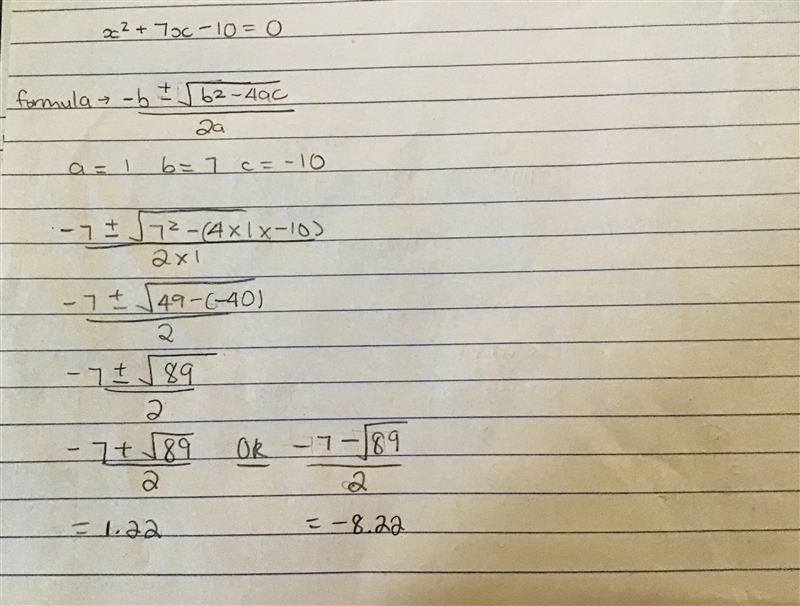 x² + 7x - 10 = 0
formula → -b ± √b² - 4ac
2a
a = 1 b = 7 c = -10
-7 ± √7² - (4×1×-10)
2×1
-7 ± √49 - (-40)
2
-7 ± √89
2
-7 + √89 OR -7 - √89
2 2
= 1.22 = -8.22